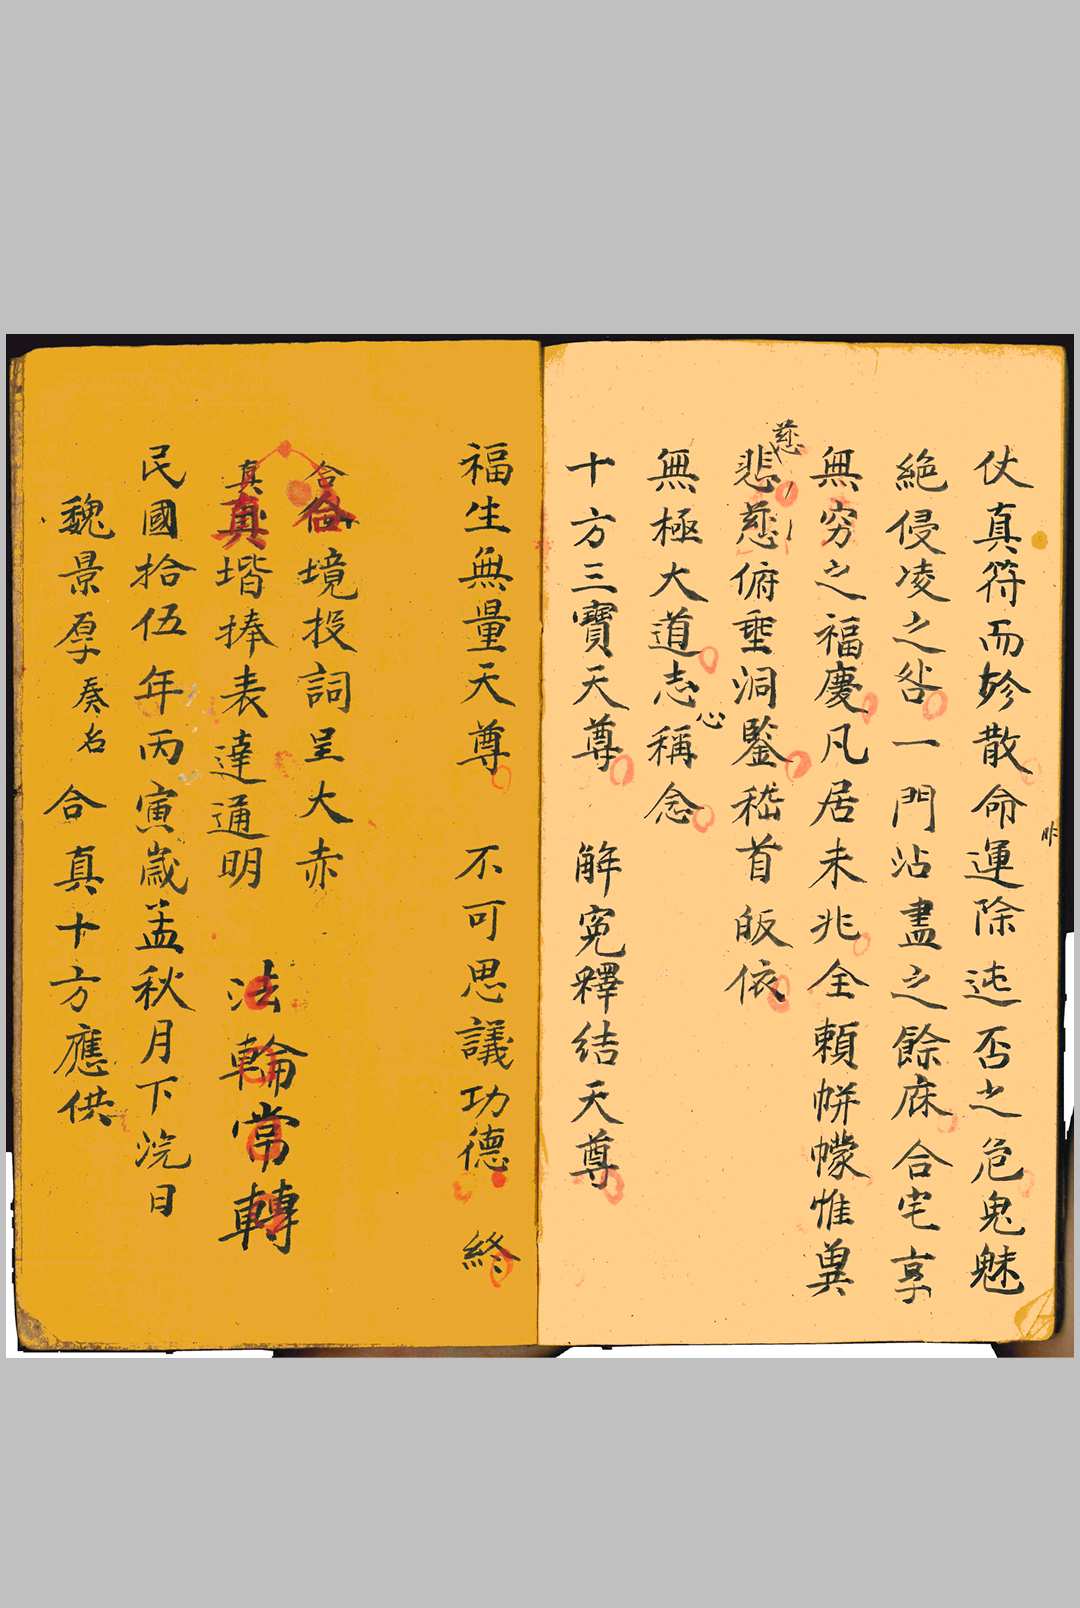 仗真符而妙散命運除迍否之危鬼魅
絶侵凌之咎一門沾盡之餘庥合宅享
無穷之福慶凡居未兆全頼帡幪惟兾
慈
悲慈俯垂洞鑒嵇首皈依
無極大道志稱念
心
十方三寶天尊 解寃釋结天尊
福生無量天尊 不可思議功德 終
合
合境投詞呈大赤
真
真堦捧表達通明
法輪常轉
民國拾伍年丙寅歲孟秋月下浣日
魏景厚奏名 合真十方應供